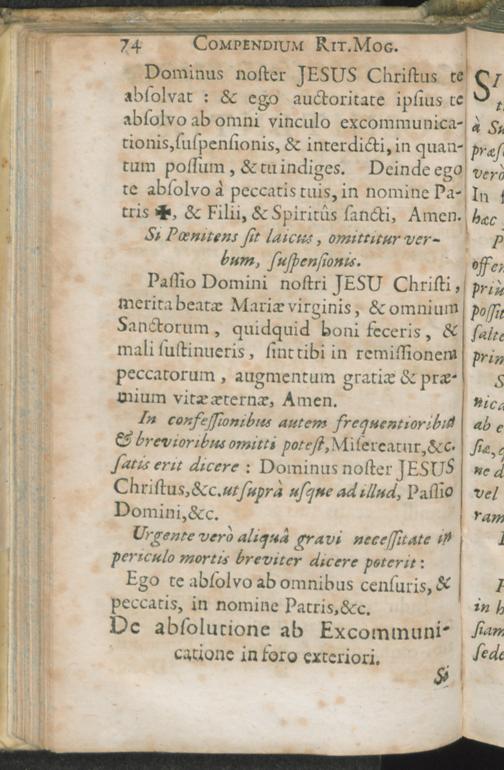 74 COMPENDIUM RIT. MOG.
Dominus noſter JESUS Chriſtus te
abſolvat : & ego auctoritate ipſius te
abſolvo ab omni vinculo excommunica-
tionis, ſuſpenſionis, & interdicti, in quan-
tum poſſum, & tu indiges. Deinde ego
te abſolvo à peccatis tuis, in nomine Pa-
tris ✠, & Filii, & Spiritûs ſancti, Amen.
Si Pœnitens ſit laicus, omittitur ver-
bum, ſuſpenſionis.
Paſſio Domini noſtri JESU Chriſti,
merita beatæ Mariæ virginis, & omnium
Sanctorum, quidquid boni feceris, &
mali ſuſtinueris, ſint tibi in remiſſionem
peccatorum, augmentum gratiæ & præ-
mium vitæ æternæ, Amen.
In confeſſionibus autem frequentioribus
& brevioribus omitti poteſt, Miſereatur, &c.
ſatis erit dicere : Dominus noſter JESUS
Chriſtus, &c. ut ſuprà uſque ad illud, Paſſio
Domini, &c.
Urgente verò aliquâ gravi neceſſitate in
periculo mortis breviter dicere poterit :
Ego te abſolvo ab omnibus cenſuris, &
peccatis, in nomine Patris, &c.
De abſolutione ab Excommuni-
catione in foro exteriori.
Si
SI
à Su
præſ
verò
In
hæc
P
offer
priù
poſſit
ſalte
prin
S
nica
ab e
ſiæ, q
ne d
vel
ram
in h
ſiam
ſede